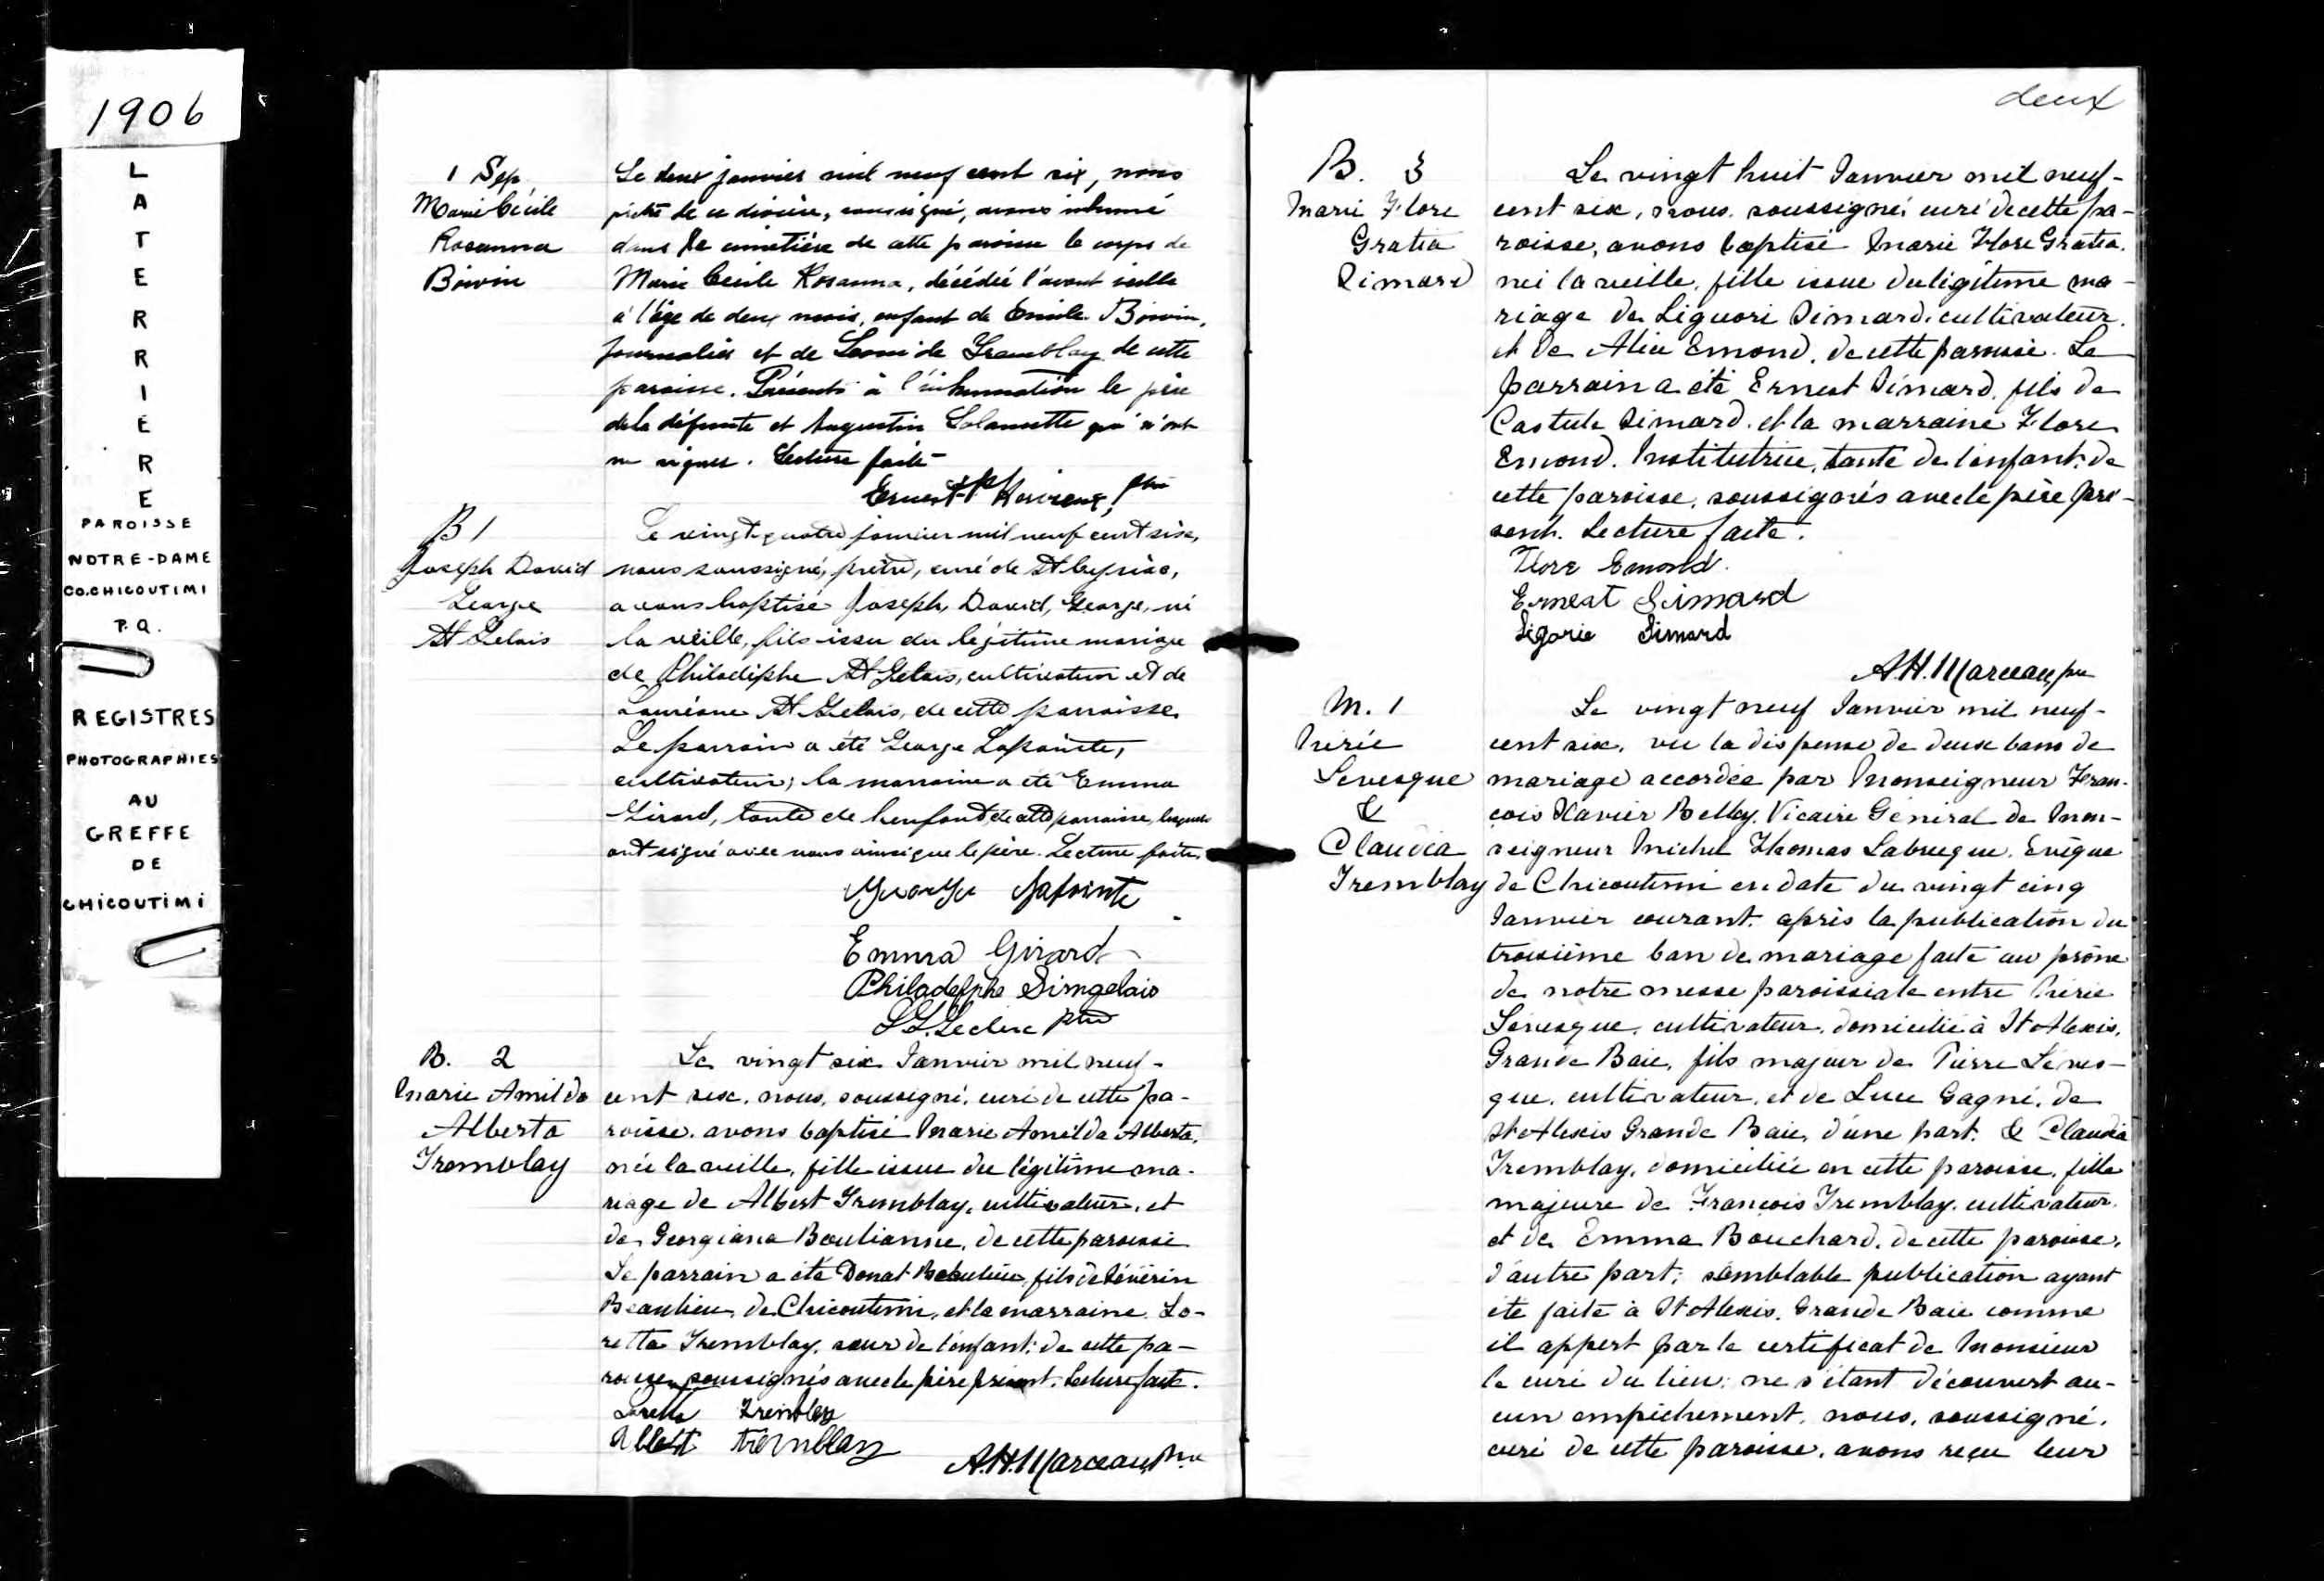 1906
LATERRIÈRE
PAROISSE
NOTRE-DAME
CO.CHICOUTIMI
P.Q.
REGISTRES
PHOTOGRAPHIES
AU
GREFFE
DE
CHICOUTIMI
1 Sep,
Marie Cécile
Rosanna
Boivin
Le deux janvier mil neuf cent six, nous
prêtre de ce diocèse, soussigné, avons inhumé
dans le cimetière de cette paroisse le corps de
Marie Cécile Rosanna, décédée l'avant veille
à l'âge de deux mois, enfant de Emile Boivin,
journalier et de Léonide Tremblay de cette
paroisse. Présents à l'inhumation le père
de la défunte et Augustin qui n'ont
su signer. Lecture faite
Ernest ptre
B 1
Joseph David
George
St Gelais
Le vingt-quatre janvier mil neuf cent six,
nous soussigné, prêtre, curé de St Cyriac,
avons baptisé Joseph, David, George, né
la veille, fils issu du légitime mariage
de Philadelphe St Gelais, cultivateur et de
St Gelais, de cette parroisse.
Le parrain a été George Lapointe,
cultivateur; la marraine a été Emma
Girard, tante de l'enfant, de cette parroisse, lesquels
ont signé avec nous ainsi que le père. Lecture faite.
George Lapointe
Emma Girard
Philadelphe Simgelais
Leclerc ptre
B. 2
Marie Amilda
Alberta
Tremblay
Le vingt six Janvier mil neuf-
cent six, nous, soussigné, curé de cette pa-
roisse, avons baptisé Marie Amilda Alberta,
née la veille, fille issue du légitime ma-
riage de Albert Tremblay, cultivateur, et
de Georgiana Boulianne, de cette paroisse
Le parrain a été Donat Beaulieu, fils de Sévérin
Beaulieu, de Chicoutimi, et la marraine Lo-
retta Tremblay, sœur de l'enfant, de cette pa-
roisse, soussignés avec le père présent. Lecture faite.
Loretta Tremblay
Albert tremblay
A.H. Marceau, Ptre
deux
B. 3
Marie Flore
Gratia
Simard
Le vingt huit Janvier mil neuf-
cent six, nous, soussigné, curé de cette pa-
roisse, avons baptisé Marie Flore Gratia,
née la veille, fille issue du légitime ma-
riage de Liguori Simard, cultivateur,
et de Alice Emond, de cette paroisse. Le
parrain a été Ernest Simard, fils de
Castule Simard, et la marraine Flore
Emond, Institutrice, tante de l'enfant, de
cette paroisse, soussignés avec le père pré-
sent. Lecture faite.
Flore Emond.
Ernest Simard
Ligorie Simard
A.H. Marceau ptre
M. 1
Nérée
Levesque
&
Claudia
Tremblay
Le vingt neuf Janvier mil neuf-
cent six, vu la dispense de deux bans de
mariage accordée par Monseigneur Fran-
çois Xavier Belley, Vicaire Général de Mon-
seigneur Michel Thomas Labrecque, Evêque
de Chicoutimi en date du vingt cinq
Janvier courant, après la publication du
troisième ban de mariage faite au prône
de notre messe paroissiale entre Nérée
Lévesque, cultivateur, domicilié à St Alexis,
Grande Baie, fils majeur de Pierre Léves-
que, cultivateur, et de Luce Gagné, de
St Alexis Grande Baie, d'une part, & Claudia
Tremblay, domiciliée en cette paroisse, fille
majeure de François Tremblay, cultivateur,
et de Emma Bouchard, de cette paroisse,
d'autre part; semblable publication ayant
été faite à St Alexis, Grande Baie comme
il appert par le certificat de Monsieur
le curé du lieu; ne s'étant découvert au-
cun empêchement, nous, soussigné,
curé de cette paroisse, avons reçu leur